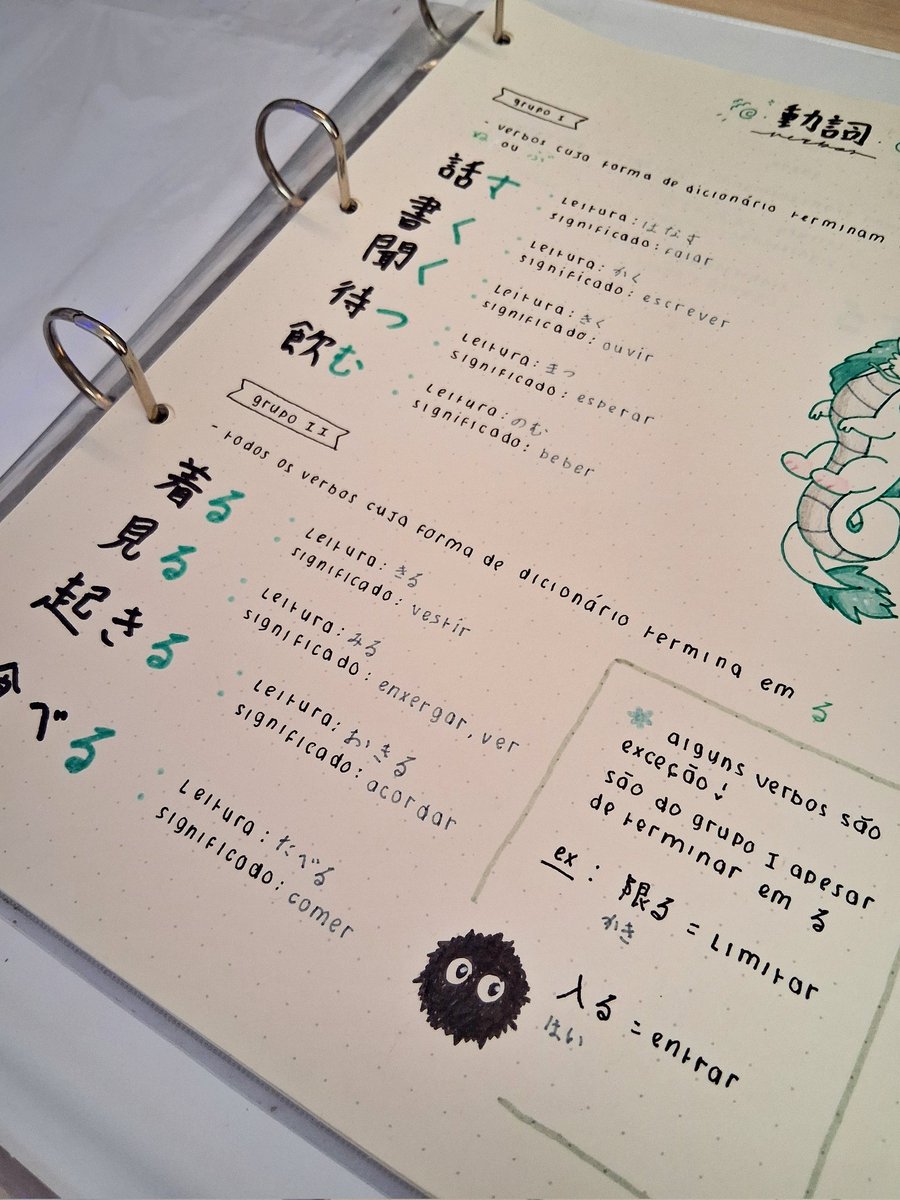 動詞
verbos
grupo I
- verbos cuja forma de dicionário terminam
ou ぶ
話す
Leitura: はなす
significado: falar
書く
Leitura: かく
significado: escrever
聞く
Leitura: きく
significado: ouvir
待つ
Leitura: まつ
significado: esperar
飲む
Leitura: のむ
significado: beber
grupo II
- todos os verbos cuja forma de dicionário termina em る
着る
Leitura: きる
significado: vestir
見る
Leitura: みる
significado: enxergar, ver
起きる
Leitura: おきる
significado: acordar
べる
Leitura: たべる
significado: comer
alguns verbos são
exceção!
são do grupo I apesar
de terminar em る
ex: 限る = limitar
かぎ
入る = entrar
はい